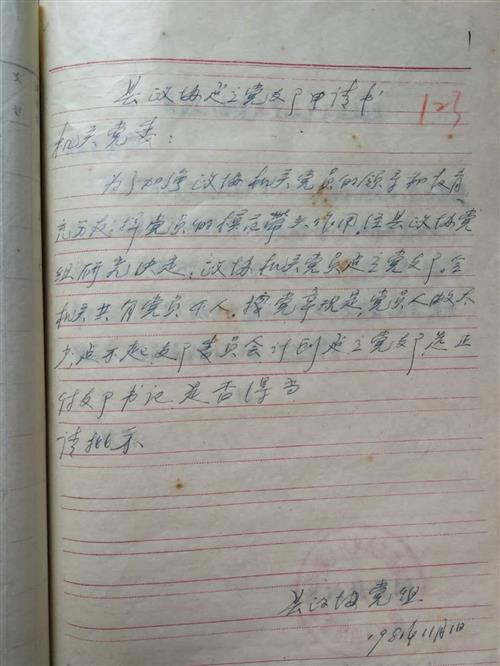 1
县政协建立党支部申请书
123
机关党委:
为了加强政协机关党员的领导和教育,
充分发挥党员的模范带头作用,经县政协党
组研究决定,政协机关党员建立党支部。全
机关共有党员 人。按党章规定,党员人数太
少,成不起支部委员会计划建立党支部,选正
付支部书记,是否得当
请批示
县政协党组
11月1日